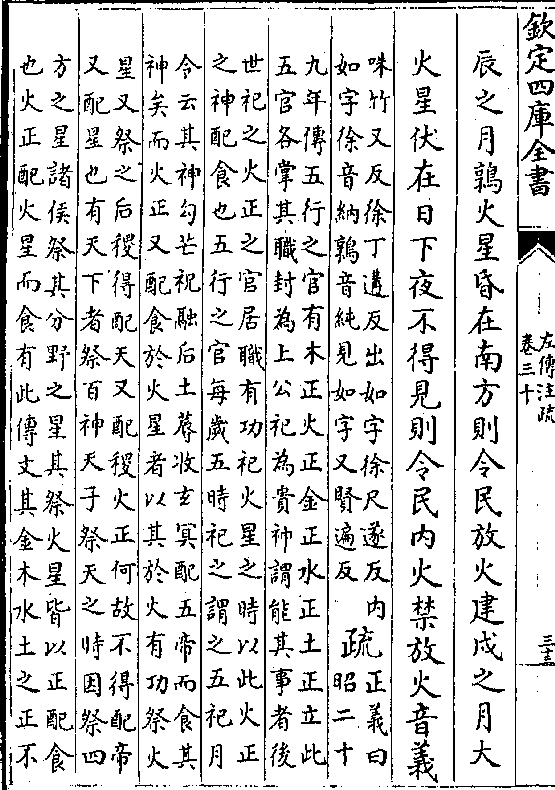 欽定四庫全書
左傳注疏
卷三十
三十三
辰之月鶉火星昏在南方則令民放火建戌之月大
火星伏在日下夜不得見則令民内火禁放火音義
咮竹又反徐丁遘反出如字徐尺遂反内
如字徐音納鶉音純見如字又賢遍反
疏
正義曰
昭二十
九年傳五行之官有木正火正金正水正土正立此
五官各掌其職封為上公祀為貴神謂能其事者後
世祀之火正之官居職有功祀火星之時以此火正
之神配食也五行之官每歲五時祀之謂之五祀月
令云其神勾芒祝融后土蓐收玄冥配五帝而食其
神矣而火正又配食於火星者以其於火有功祭火
星又祭之后稷得配天又配稷火正何故不得配帝
又配星也有天下者祭百神天子祭天之時因祭四
方之星諸侯祭其分野之星其祭火星皆以正配食
也火正配火星而食有此傳文其金木水土之正不